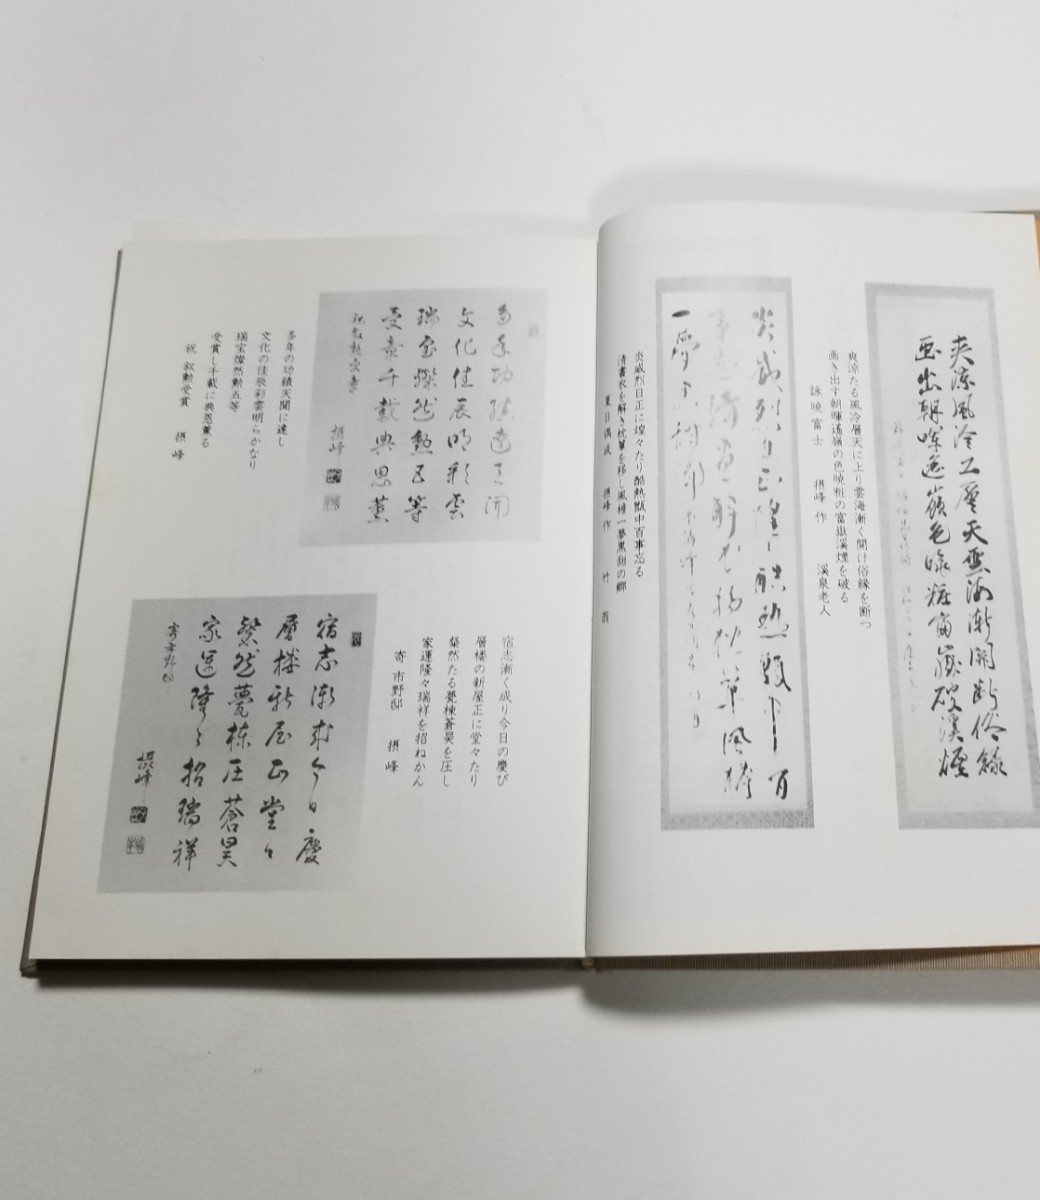 爽涼風冷上層天雲海漸開断俗縁
画出朝暉遙嶺色暁粧富嶽破溪煙
爽涼たる風冷層天に上り雲海漸く開け俗縁を断つ
画き出す朝暉遙嶺の色暁粧の富嶽溪煙を破る
詠暁富士　摂峰作　溪泉老人
炎威烈日正煌々酷熱獣中百
事忘清昼解衣移枕簟風櫺
一夢黒甜郷
炎威烈日正に煌々たり酷熱獣中百事忘る
清昼衣を解き枕簟を移し風櫺一夢黒甜の郷
夏日偶成　摂峰作　竹首
多年功績達天聞
文化佳辰明彩雲
瑞宝燦然勲五等
受賞千載典恩薫
摂峰
多年の功績天聞に達し
文化の佳辰彩雲明らかなり
瑞宝燦然勲五等
受賞し千載に典恩薫る
祝 叙勲受賞　摂峰
宿志漸成今日慶
層楼新屋正堂々
粲然甍棟圧蒼昊
家運隆々招瑞祥
寄市野邸
摂峰
宿志漸く成り今日の慶び
層楼の新屋正に堂々たり
粲然たる甍棟蒼昊を圧し
家運隆々瑞祥を招ねかん
寄 市野邸　摂峰